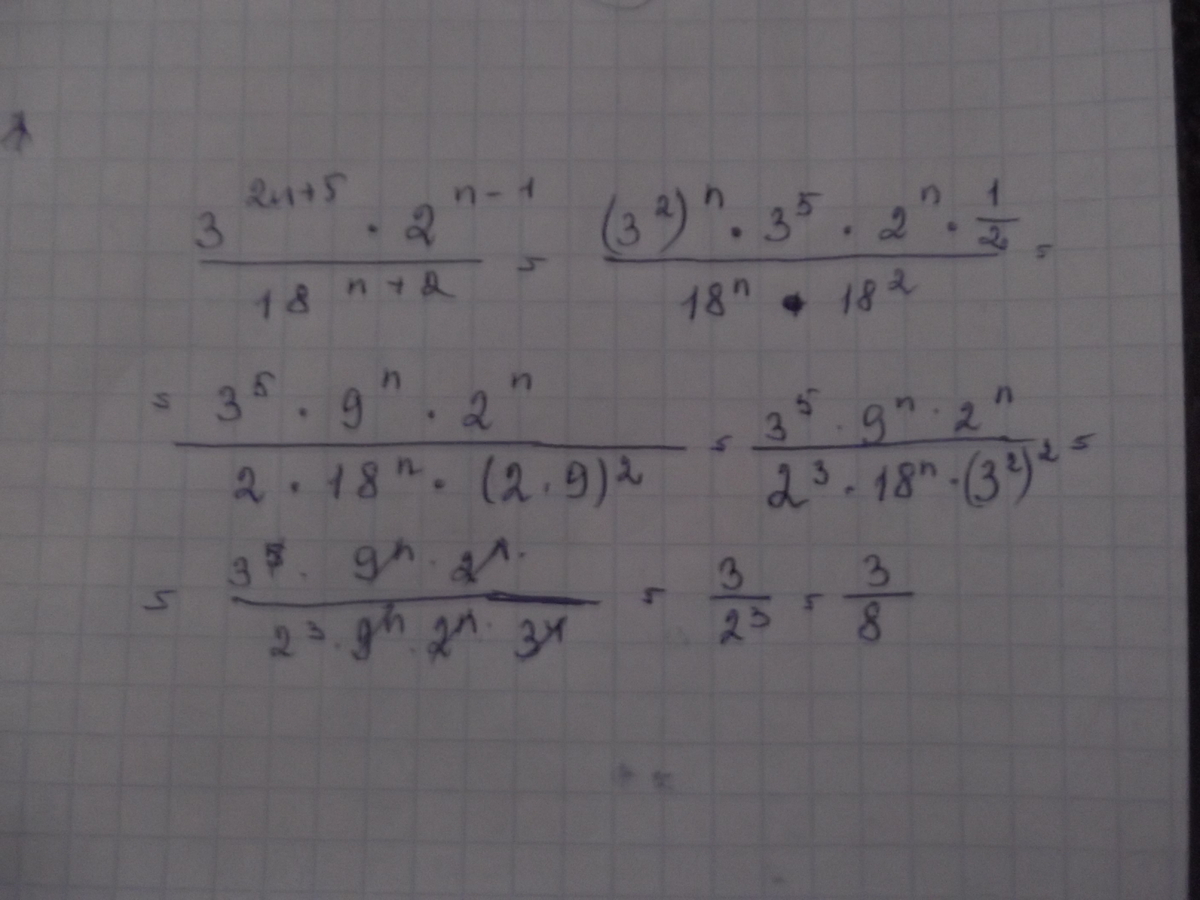 3^{2n+5} · 2^{n-1} / 18^{n+2} = (3^2)^n · 3^5 · 2^n · 1/2 / 18^n · 18^2 =
= 3^5 · 9^n · 2^n / 2 · 18^n · (2·9)^2 = 3^5 · 9^n · 2^n / 2^3 · 18^n · (3^2)^2 =
= 3^5 · 9^n · 2^n · / 2^3 · 9^n · 2^n · 3^4 = 3 / 2^3 = 3 / 8